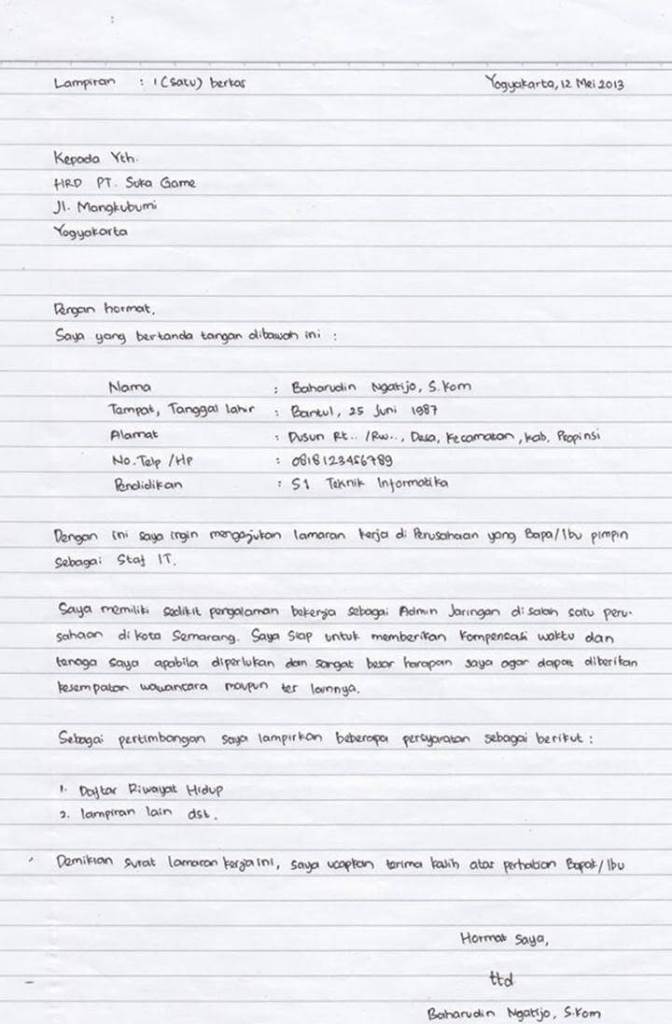 Lampiran : 1 (satu) berkas Yogyakarta, 12 Mei 2013
Kepada Yth.
HRD PT. Suka Game
Jl. Mangkubumi
Yogyakarta
Dengan hormat,
Saya yang bertanda tangan dibawah ini :
Nama : Baharudin Ngatijo, S.Kom
Tempat, Tanggal lahir : Bantul, 25 Juni 1987
Alamat : Dusun Rt.. /Rw.., Desa, Kecamatan, Kab, Propinsi
No. Telp /HP : 0818123456789
Pendidikan : S1 Teknik Informatika
Dengan ini saya ingin mengajukan lamaran kerja di Perusahaan yang Bapa/Ibu pimpin
Sebagai Staf IT.
Saya memiliki sedikit pengalaman bekerja sebagai Admin Jaringan di salah satu peru-
sahaan di kota Semarang. Saya siap untuk memberikan kompensasi waktu dan
tenaga saya apabila diperlukan dan sangat besar harapan saya agar dapat diberikan
kesempatan wawancara maupun tes lainnya.
Sebagai pertimbangan saya lampirkan beberapa persyaratan sebagai berikut :
1. Daftar Riwayat Hidup
2. lampiran lain dst.
Demikian surat lamaran kerja ini, saya ucapkan terima kasih atas perhatian Bapak/Ibu
Hormat Saya,
ttd
Baharudin Ngatijo, S.Kom